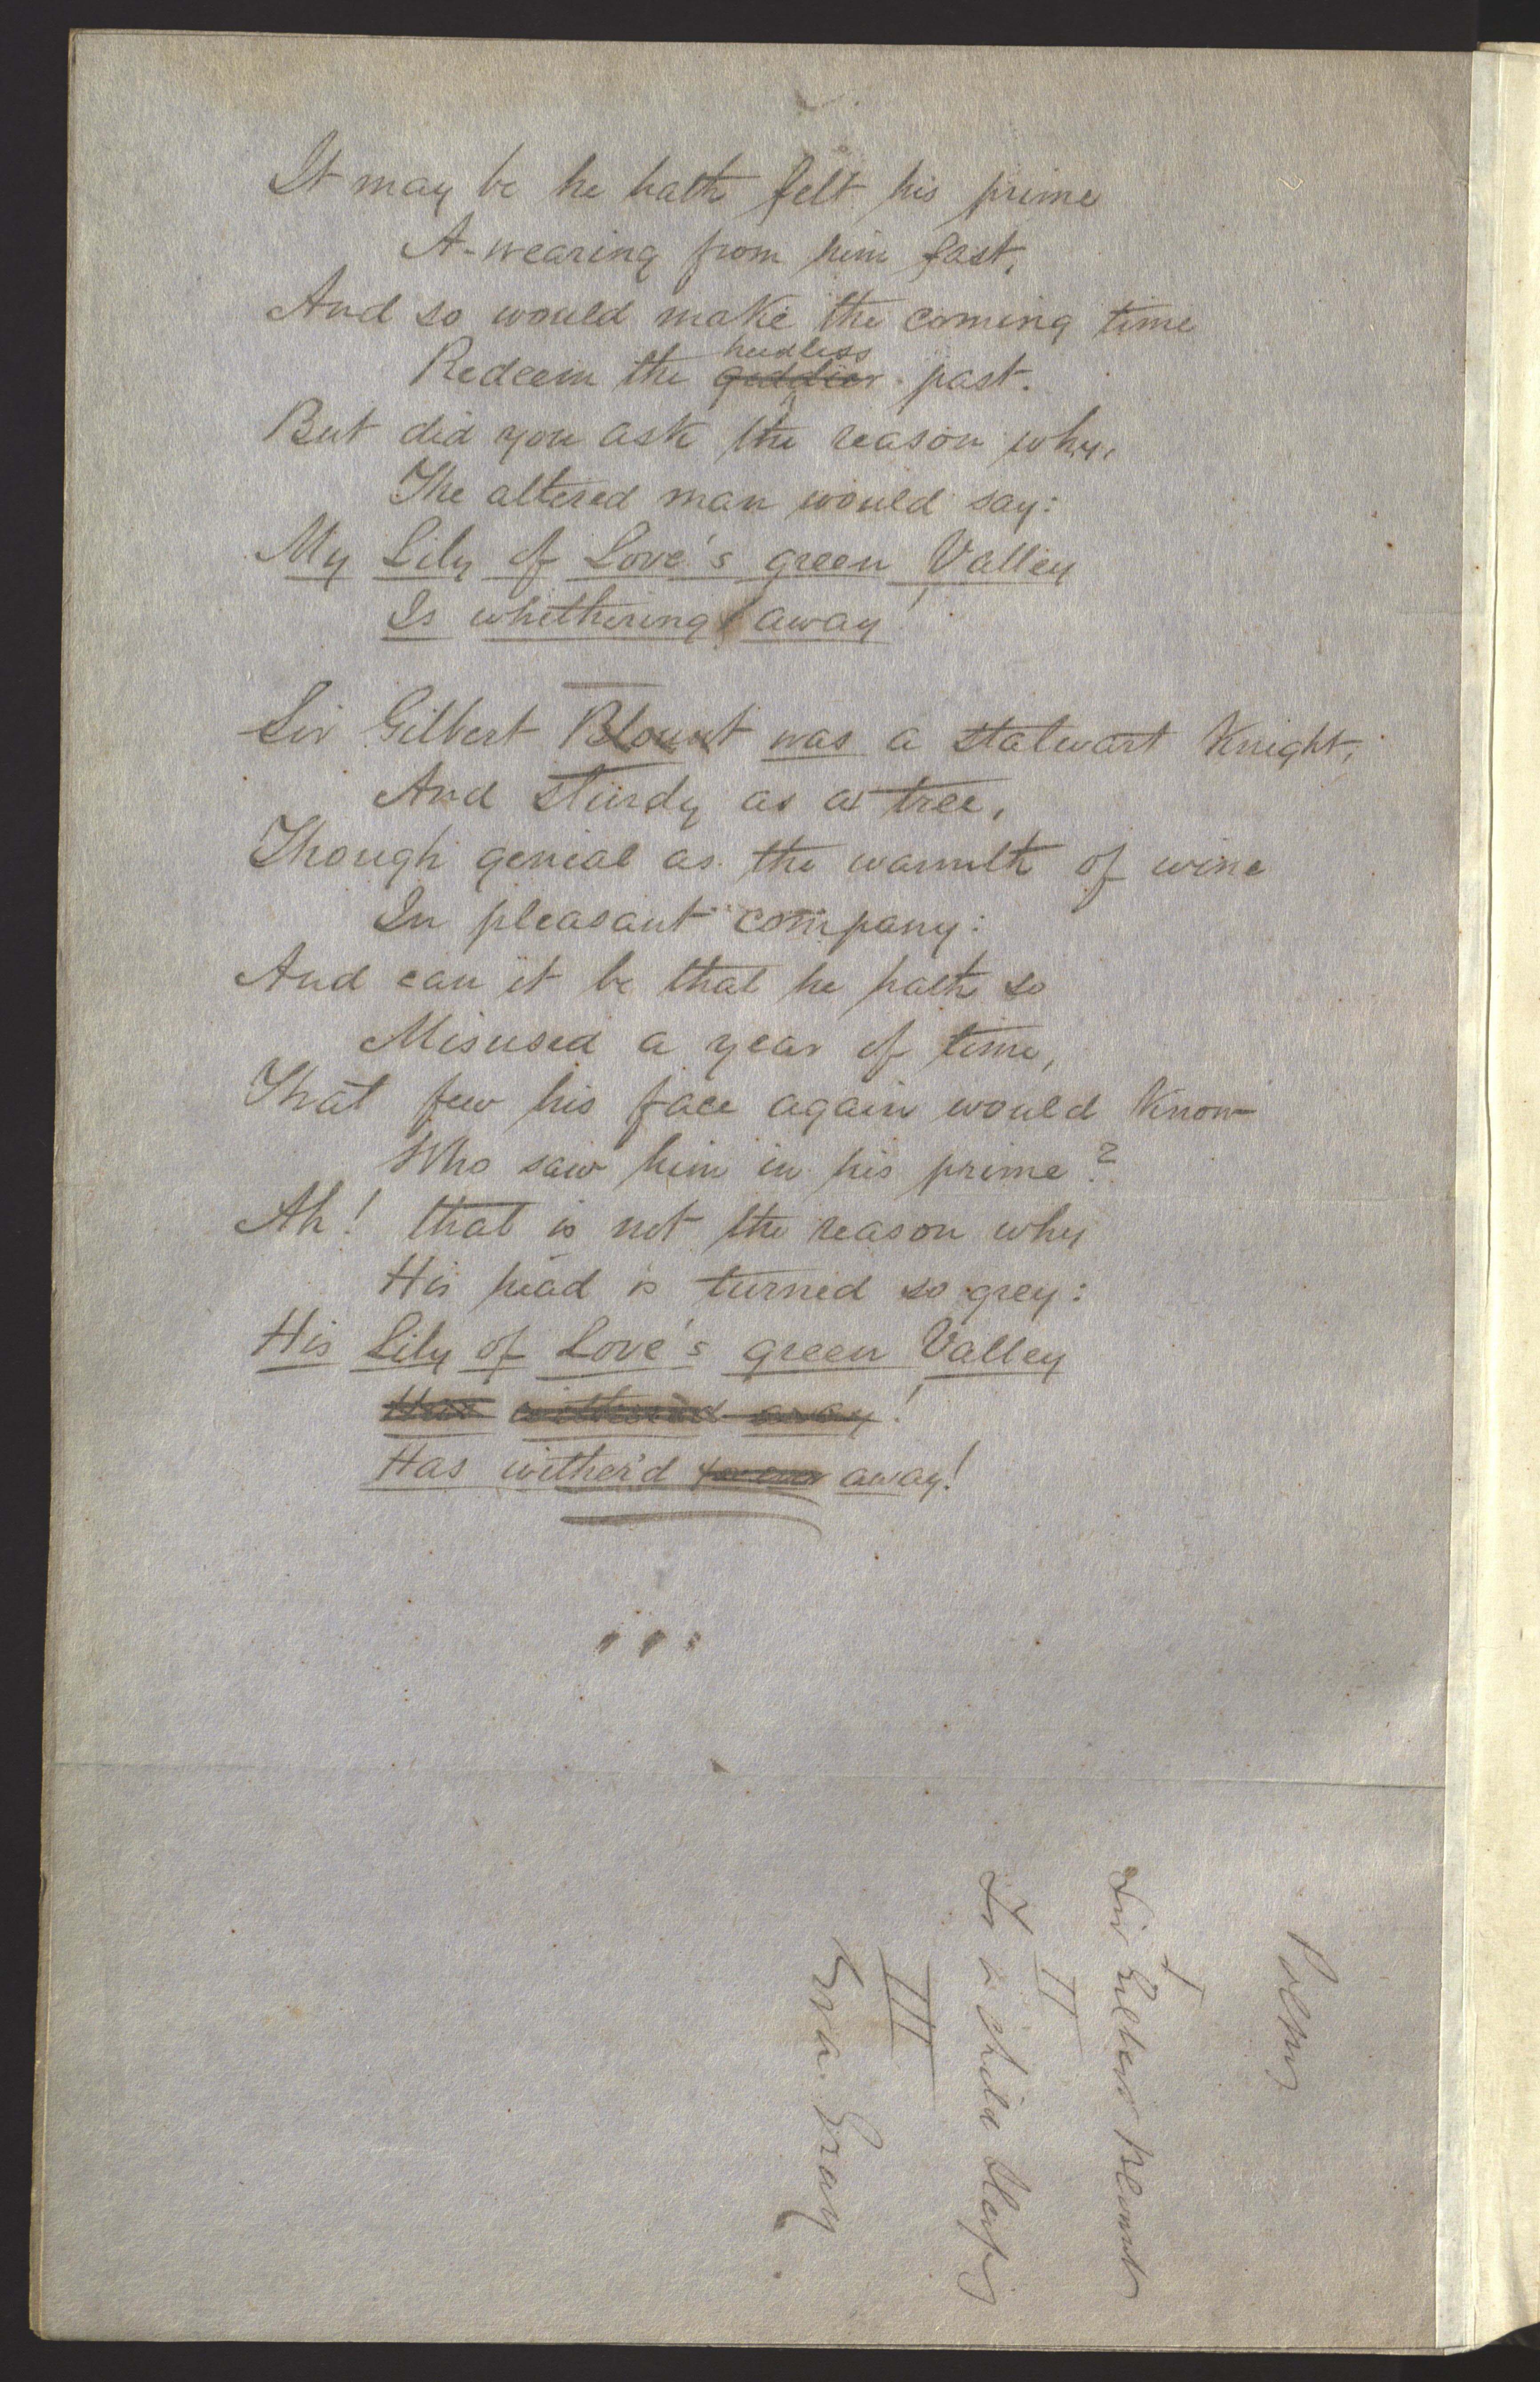 It may be he hath felt his prime
A-wearing from him fast,
And so would make the coming time
heedless
Redeem the giddier past.
But did you ask the reason why,
The altered man would say:
My Lily of Love's green Valley
Is whithering away!
Sir Gilbert Blount was a stalwart Knight,
And sturdy as a tree,
Though genial as the warmth of wine
In pleasant company:
And can it be that he hath so
Misused a year of time,
That few his face again would know
Who saw him in his prime?
Ah! that is not the reason why
His head is turned so grey:
His Lily of Love's green Valley
Has withered away!
Has wither'd for ever away!
Poems
I
Sir Gilbert Blount
II
To a child Sleeps
III
Eva Gray